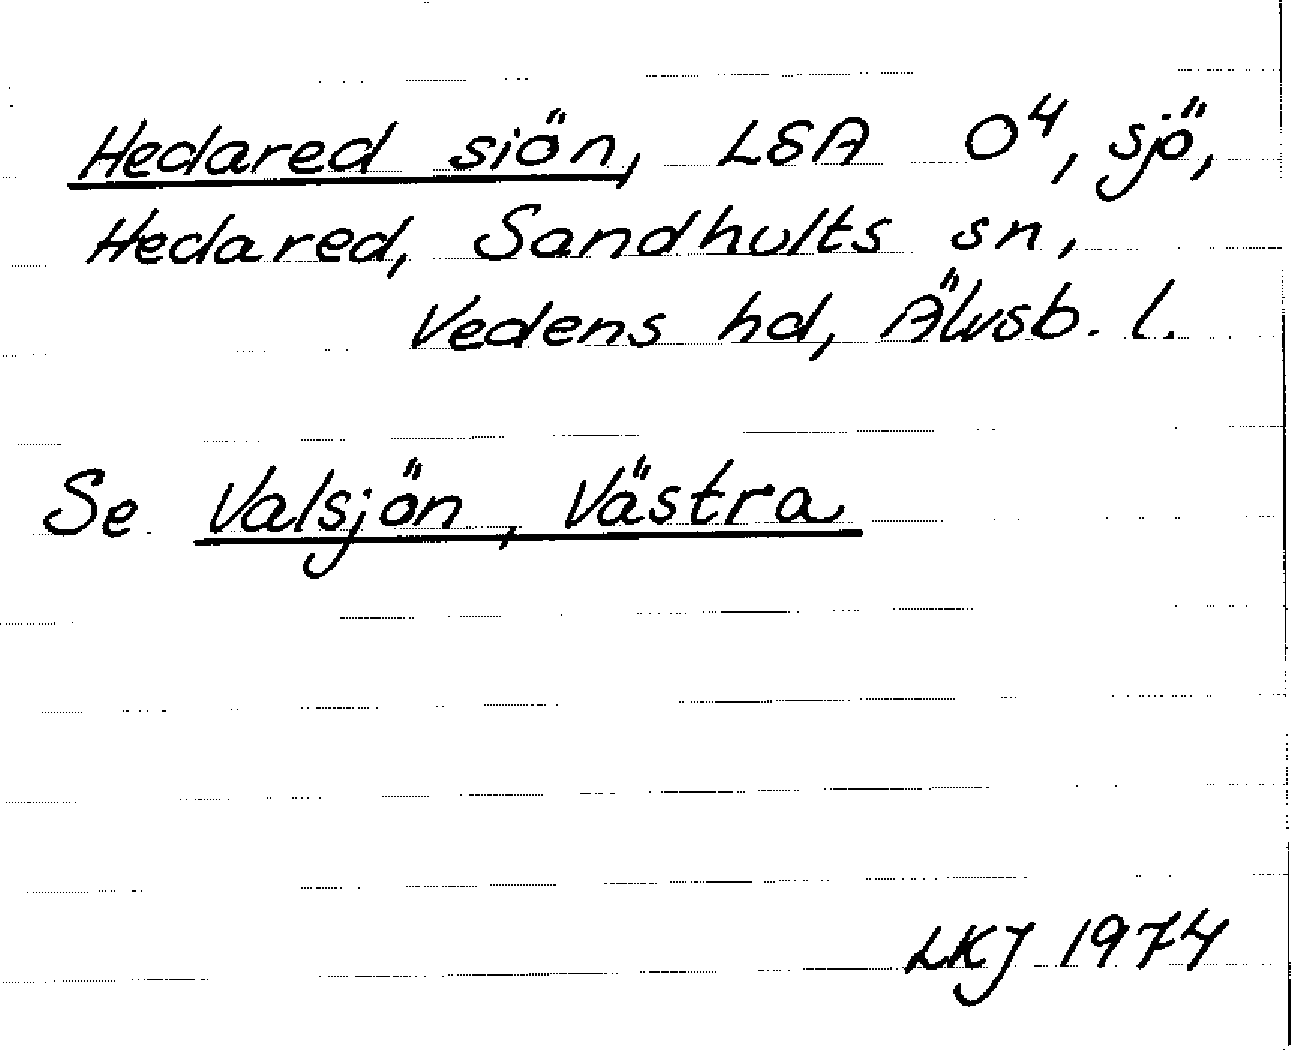 Hedared siön, LSA O⁴, sjö,
Hedared, Sandhults sn,
Vedens hd, Älvsb. l.
Se Valsjön, Västra
LKJ 1974